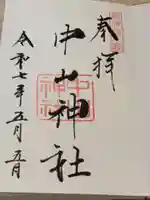 奉拝
中山神社
令和七年五月五日